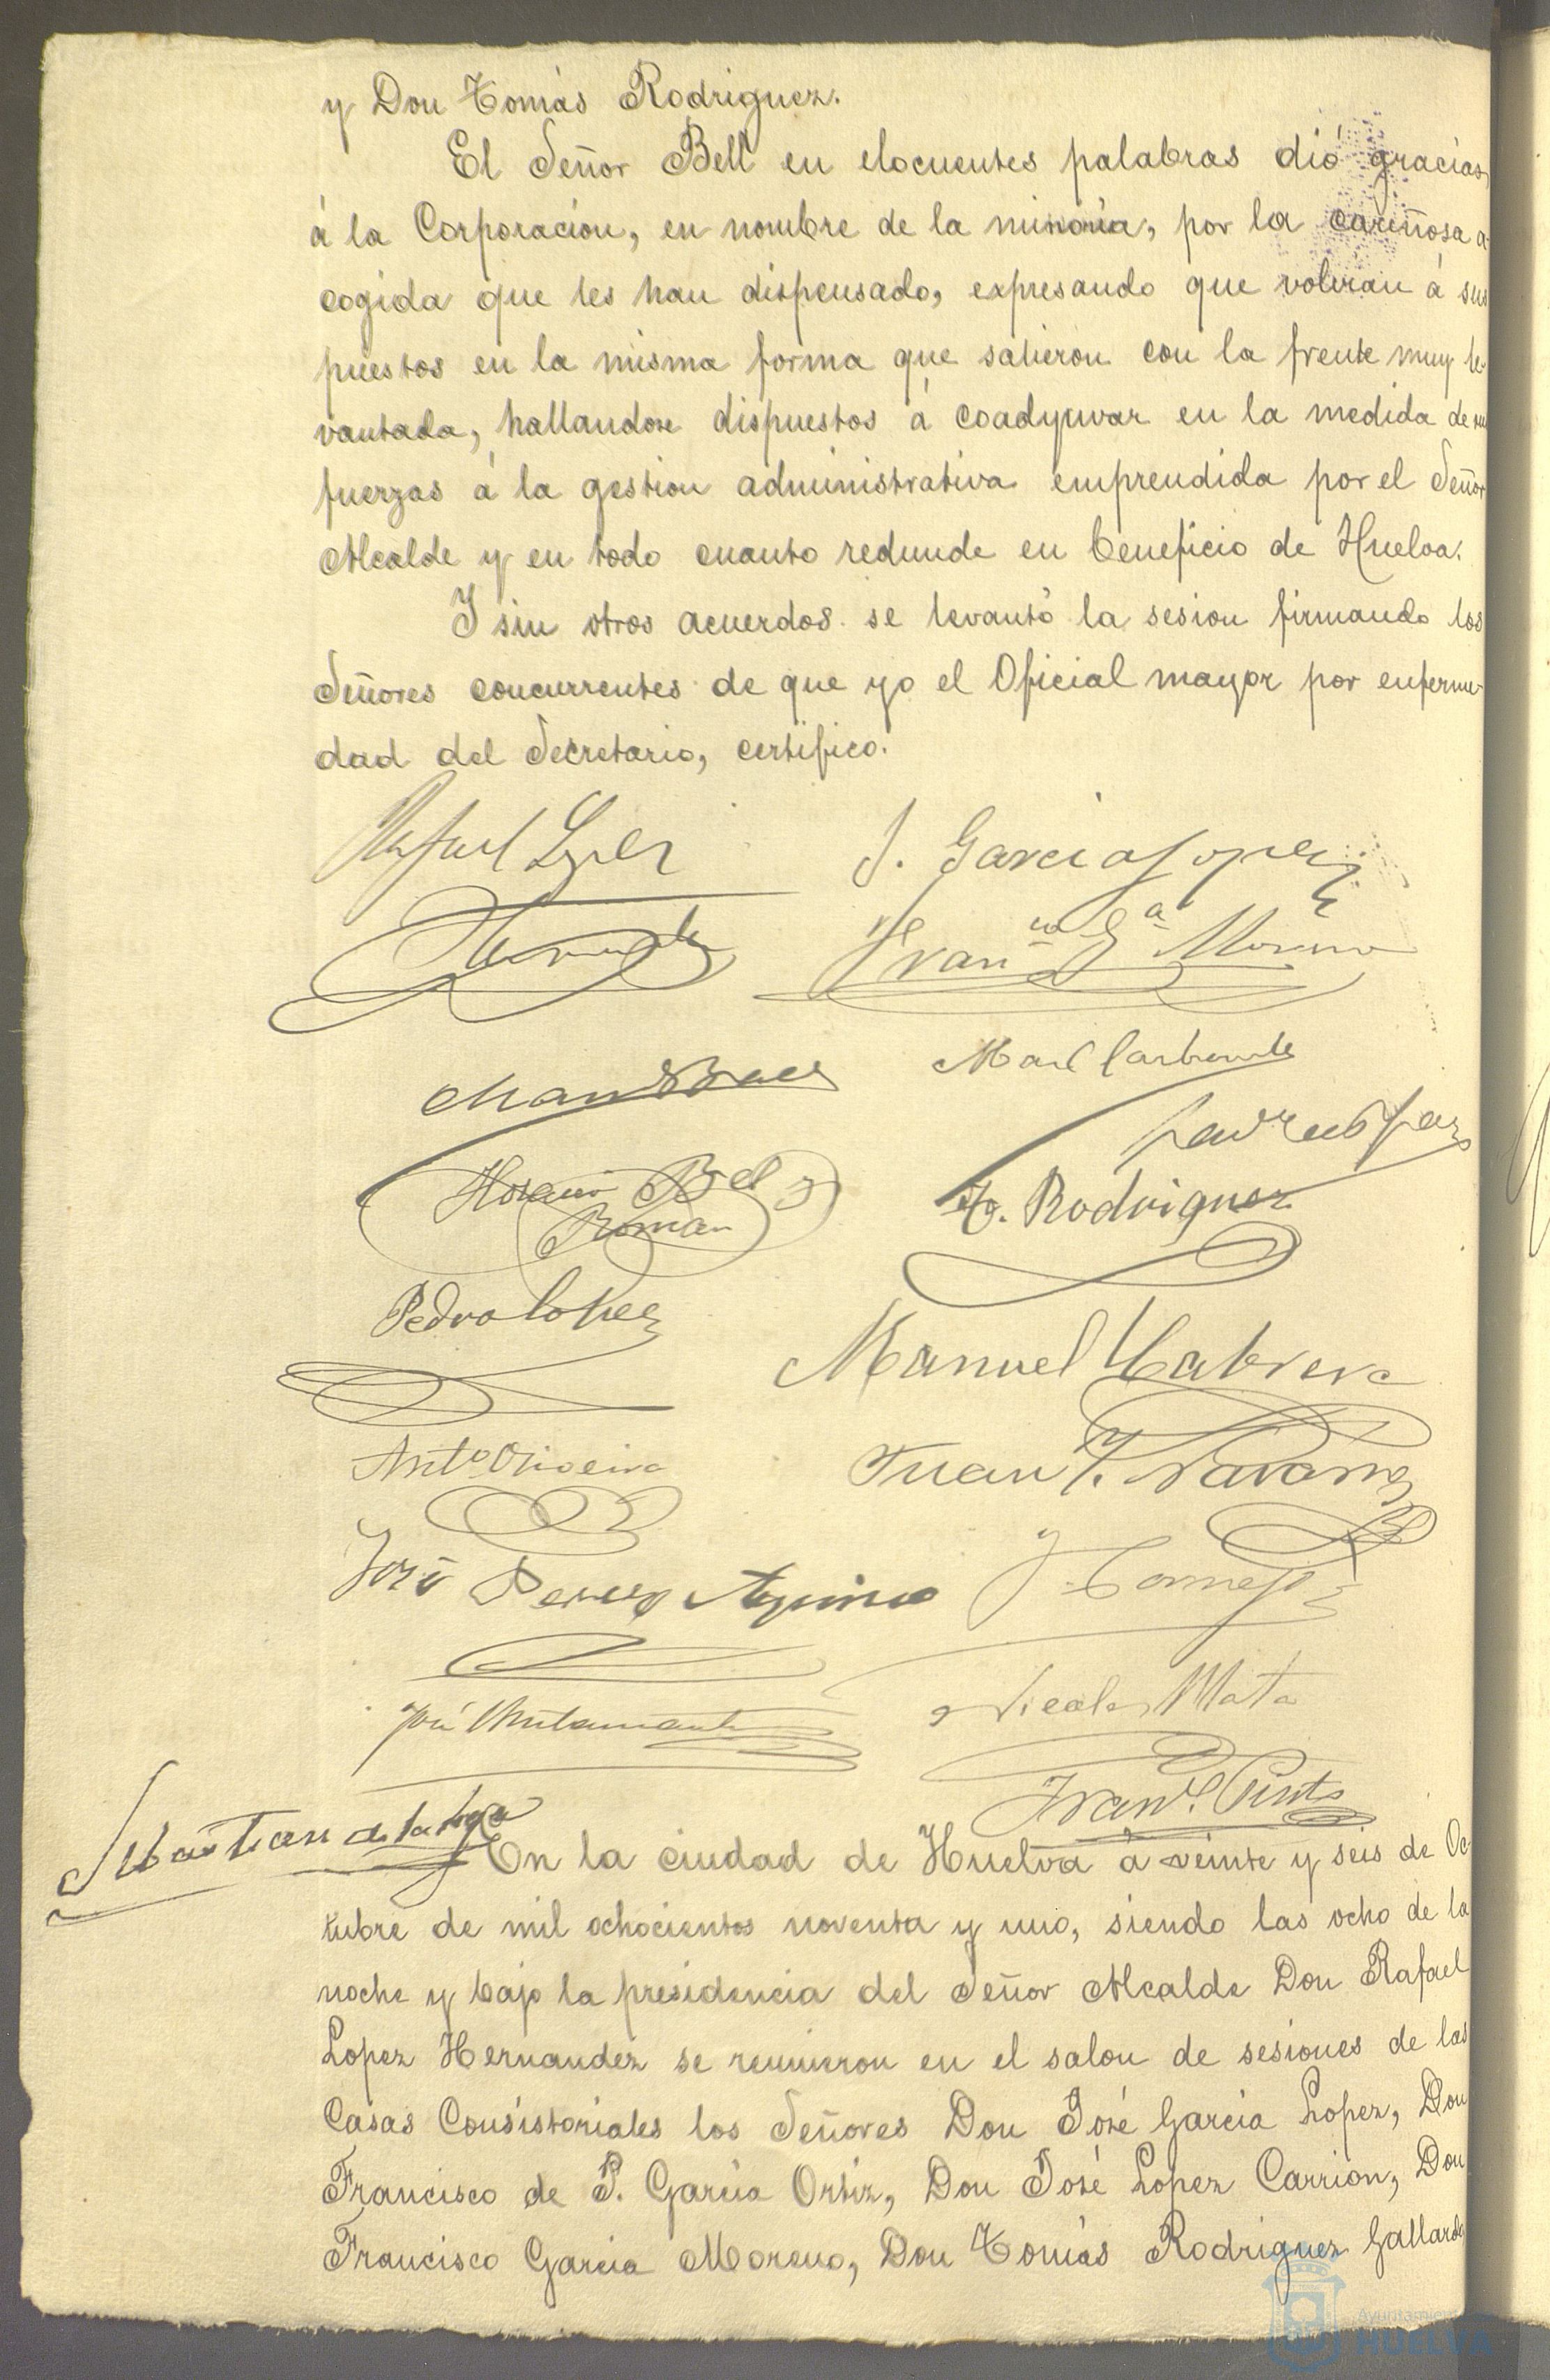 y Don Tomás Rodriguez.
El Señor Bell en elocuentes palabras dió gracias
á la Corporacion, en nombre de la minoria, por la cariñosa a-
cogida que les han dispensado, expresando que volvian á sus
puestos en la misma forma que salieron con la frente muy le-
vantada, hallandose dispuestos á coadyuvar en la medida de sus
fuerzas á la gestion administrativa emprendida por el Señor
Alcalde y en todo cuanto redunde en beneficio de Huelva.
Y sin otros acuerdos se levantó la sesion firmando los
Señores concurrentes de que yo el Oficial mayor por enferme-
dad del Secretario, certifico.
Rafael Lopez J. Garcia Lopez
Hernandez Franco Ga Moreno
Bel
Roman
T. Rodriguez
Pedro Lopez
Manuel Cabrera
Anto Oliveira
Juan Navarro
José Perez J. Cornejo
José Bustamante Nicolas Mata
Sebastian de la Franco Pinto
En la ciudad de Huelva á veinte y seis de Oc-
tubre de mil ochocientos noventa y uno, siendo las ocho de la
noche y bajo la presidencia del Señor Alcalde Don Rafael
Lopez Hernandez se reunieron en el salon de sesiones de las
Casas Consistoriales los Señores Don José Garcia Lopez, Don
Francisco de P. Garcia Ortiz, Don José Lopez Carrion, Don
Francisco Garcia Moreno, Don Tomás Rodriguez Gallardo
Ayuntamie
HUELVA